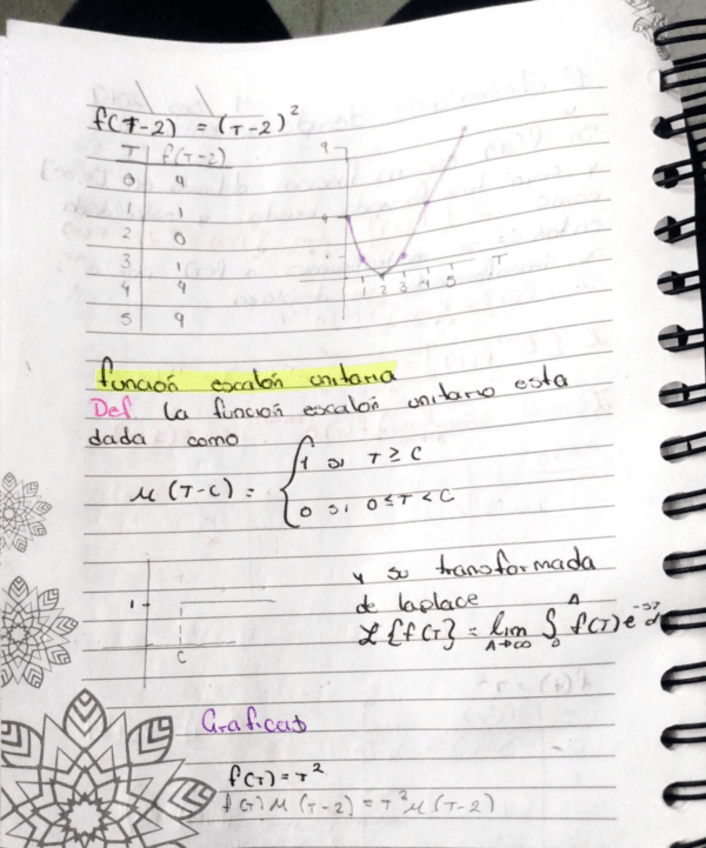 f(T-2) = (T-2)²
T | f(T-2)
0 4
1 1
2 0
3 1
4 4
5 9
9
4
1 2 3 4 5 T
función escalón unitaria
Def La función escalón unitario esta
dada como
1 si T ≥ C
μ(T-C) =
0 si 0 ≤ T < C
y su transformada
1
de laplace
ℒ{f(T)} = lim A→∞ ∫₀ᴬ f(T)e⁻ˢᵀ d
C
Graficas
f(T) = T²
f(T)μ(T-2) = T²μ(T-2)